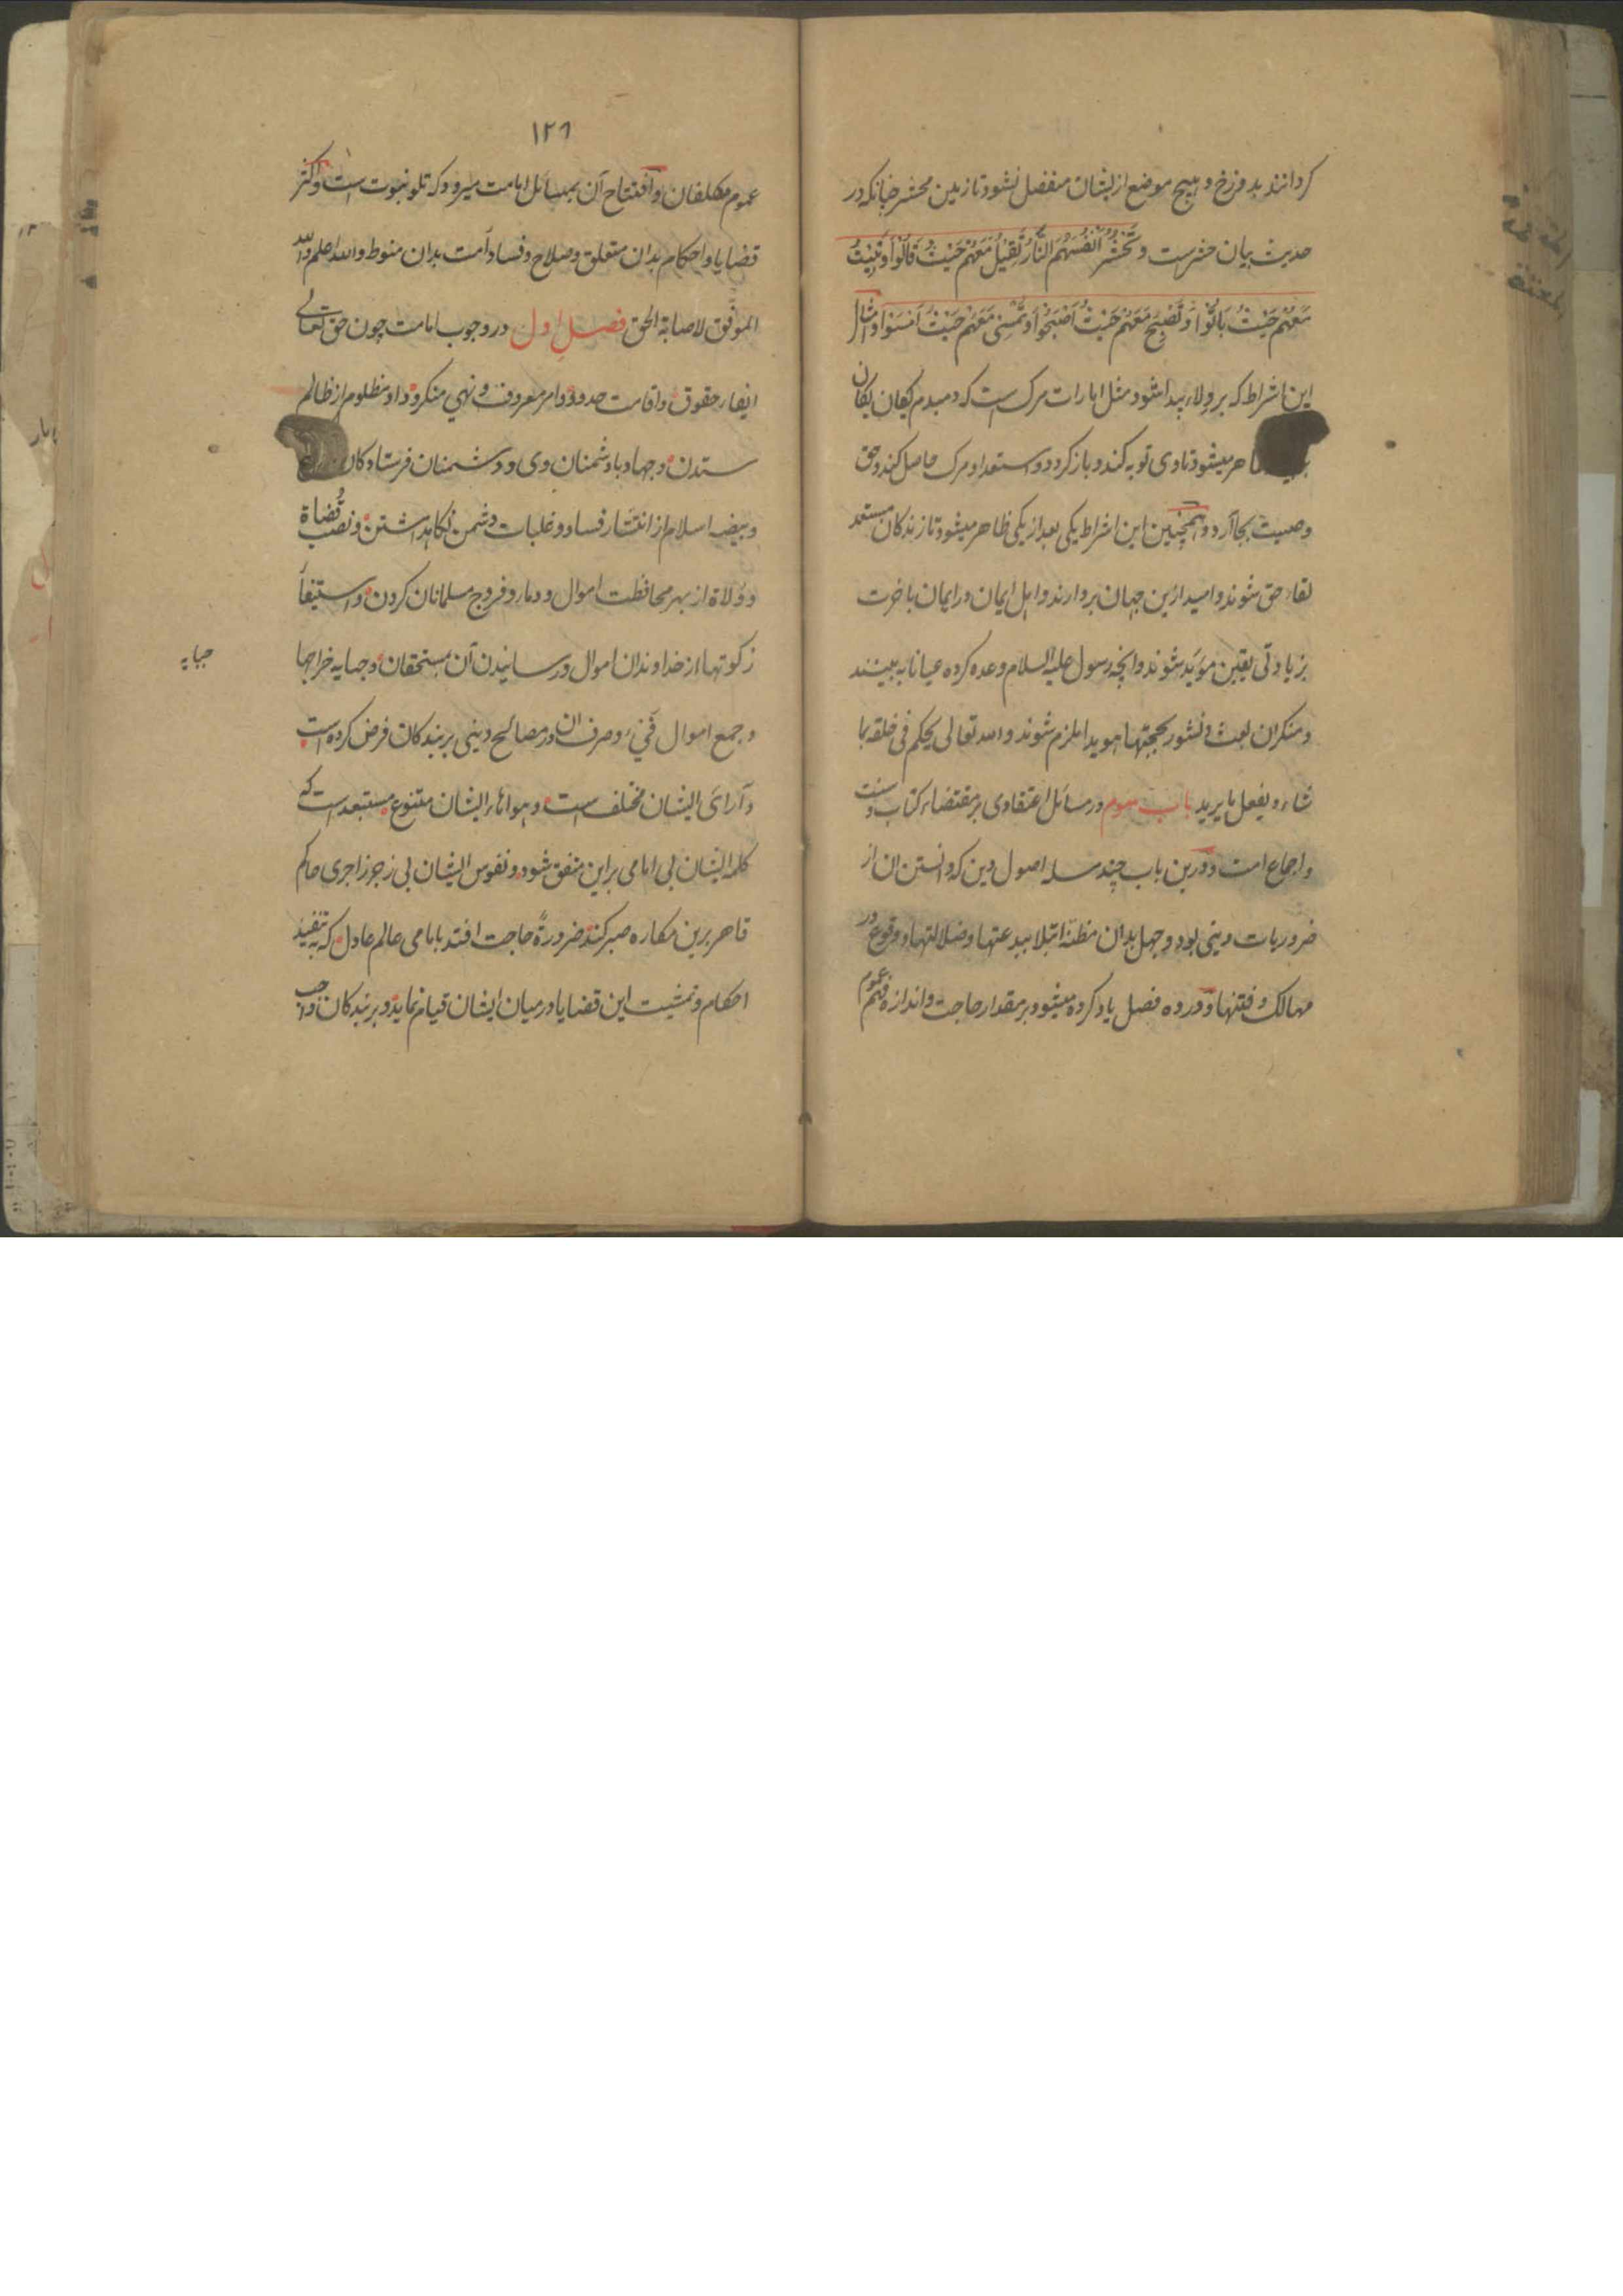 کردانند بدوزخ و بهیچ موضع ازیشان منفصل نشود تا زمین محشر چنانکه در
حدیث بیان حشرست و تحشر انفسهم النار تقیل معهم حیث قالوا و تبیت
معهم حیث باتوا و تصبح معهم حیث اصبحوا و تمسی معهم حیث امسوا و امثال
این اشراط که بر ولاء پیدا شود مثل امارات مرک است که دمبدم یکان یکان
ظاهر میشود تا وی توبه کند و باز کردد و استعداد مرک حاصل کند و حق
وصیت بجا آرد و همچنین این اشراط یکی بعد از یکی ظاهر میشود تا زندکان مستعد
لقاء حق شوند و امید ازین جهان بردارند و اهل ایمان در ایمان باخرت
بزیادتی یقین مؤید شوند و انچه رسول علیه السلام وعده کرده عیانا به بینند
و منکران بعث و نشور بحجتهاء هویدا ملزم شوند و الله تعالی یحکم فی خلقه بما
شاء و یفعل ما یرید باب سوم در مسائل اعتقادی بر مقتضاء کتاب و سنت
و اجماع امت و درین باب چند مسله اصول دین که دانستن ان از
ضروریات دینی بود و جهل بدان مظنه ابتلا ببدعتها و ضلالتها و وقوع در
مهالک و فتنها و در ده فصل یاد کرده میشود بر مقدار حاجت و اندازه فهم عموم
۱۲۶
عموم مکلفان و افتتاح آن بمسائل امامت میرود که تلو نبوت است و اکثر
قضایا و احکام بدان متعلق و صلاح و فساد امت بدان منوط و الله اعلم و الله
الموفق لاصابة الحق فصل اول در وجوب امامت چون حق تعالی
ایفاء حقوق و اقامت حدود و امر معروف و نهی منکر و داد مظلوم از ظالم
ستدن و جهاد با دشمنان وی و دشمنان فرستادکان
و بیضه اسلام از انتشار فساد و غلبات دشمن نکاهداشتن و نصب قضاة
و ولاة از بهر محافظت اموال و دماء و فروج مسلمانان کردن و استیفاء
زکوتها از خداوندان اموال و رسانیدن آن بمستحقان و جبایه خراجها
جبایه
و جمع اموال فیء و صرف ان در مصالح دینی بر بندکان فرض کرده است
و آرای ایشان مختلف است و هواهاء ایشان متنوع مستبعد است که
کلمه ایشان بی امامی براین متفق شود و نفوس ایشان بی زجر زاجری حاکم
قاهر برین مکاره صبر کند ضرورةً حاجت افتد بامامی عالم عادل که به تنفیذ
احکام و تمشیت این قضایا در میان ایشان قیام نماید و بر بندکان واجب